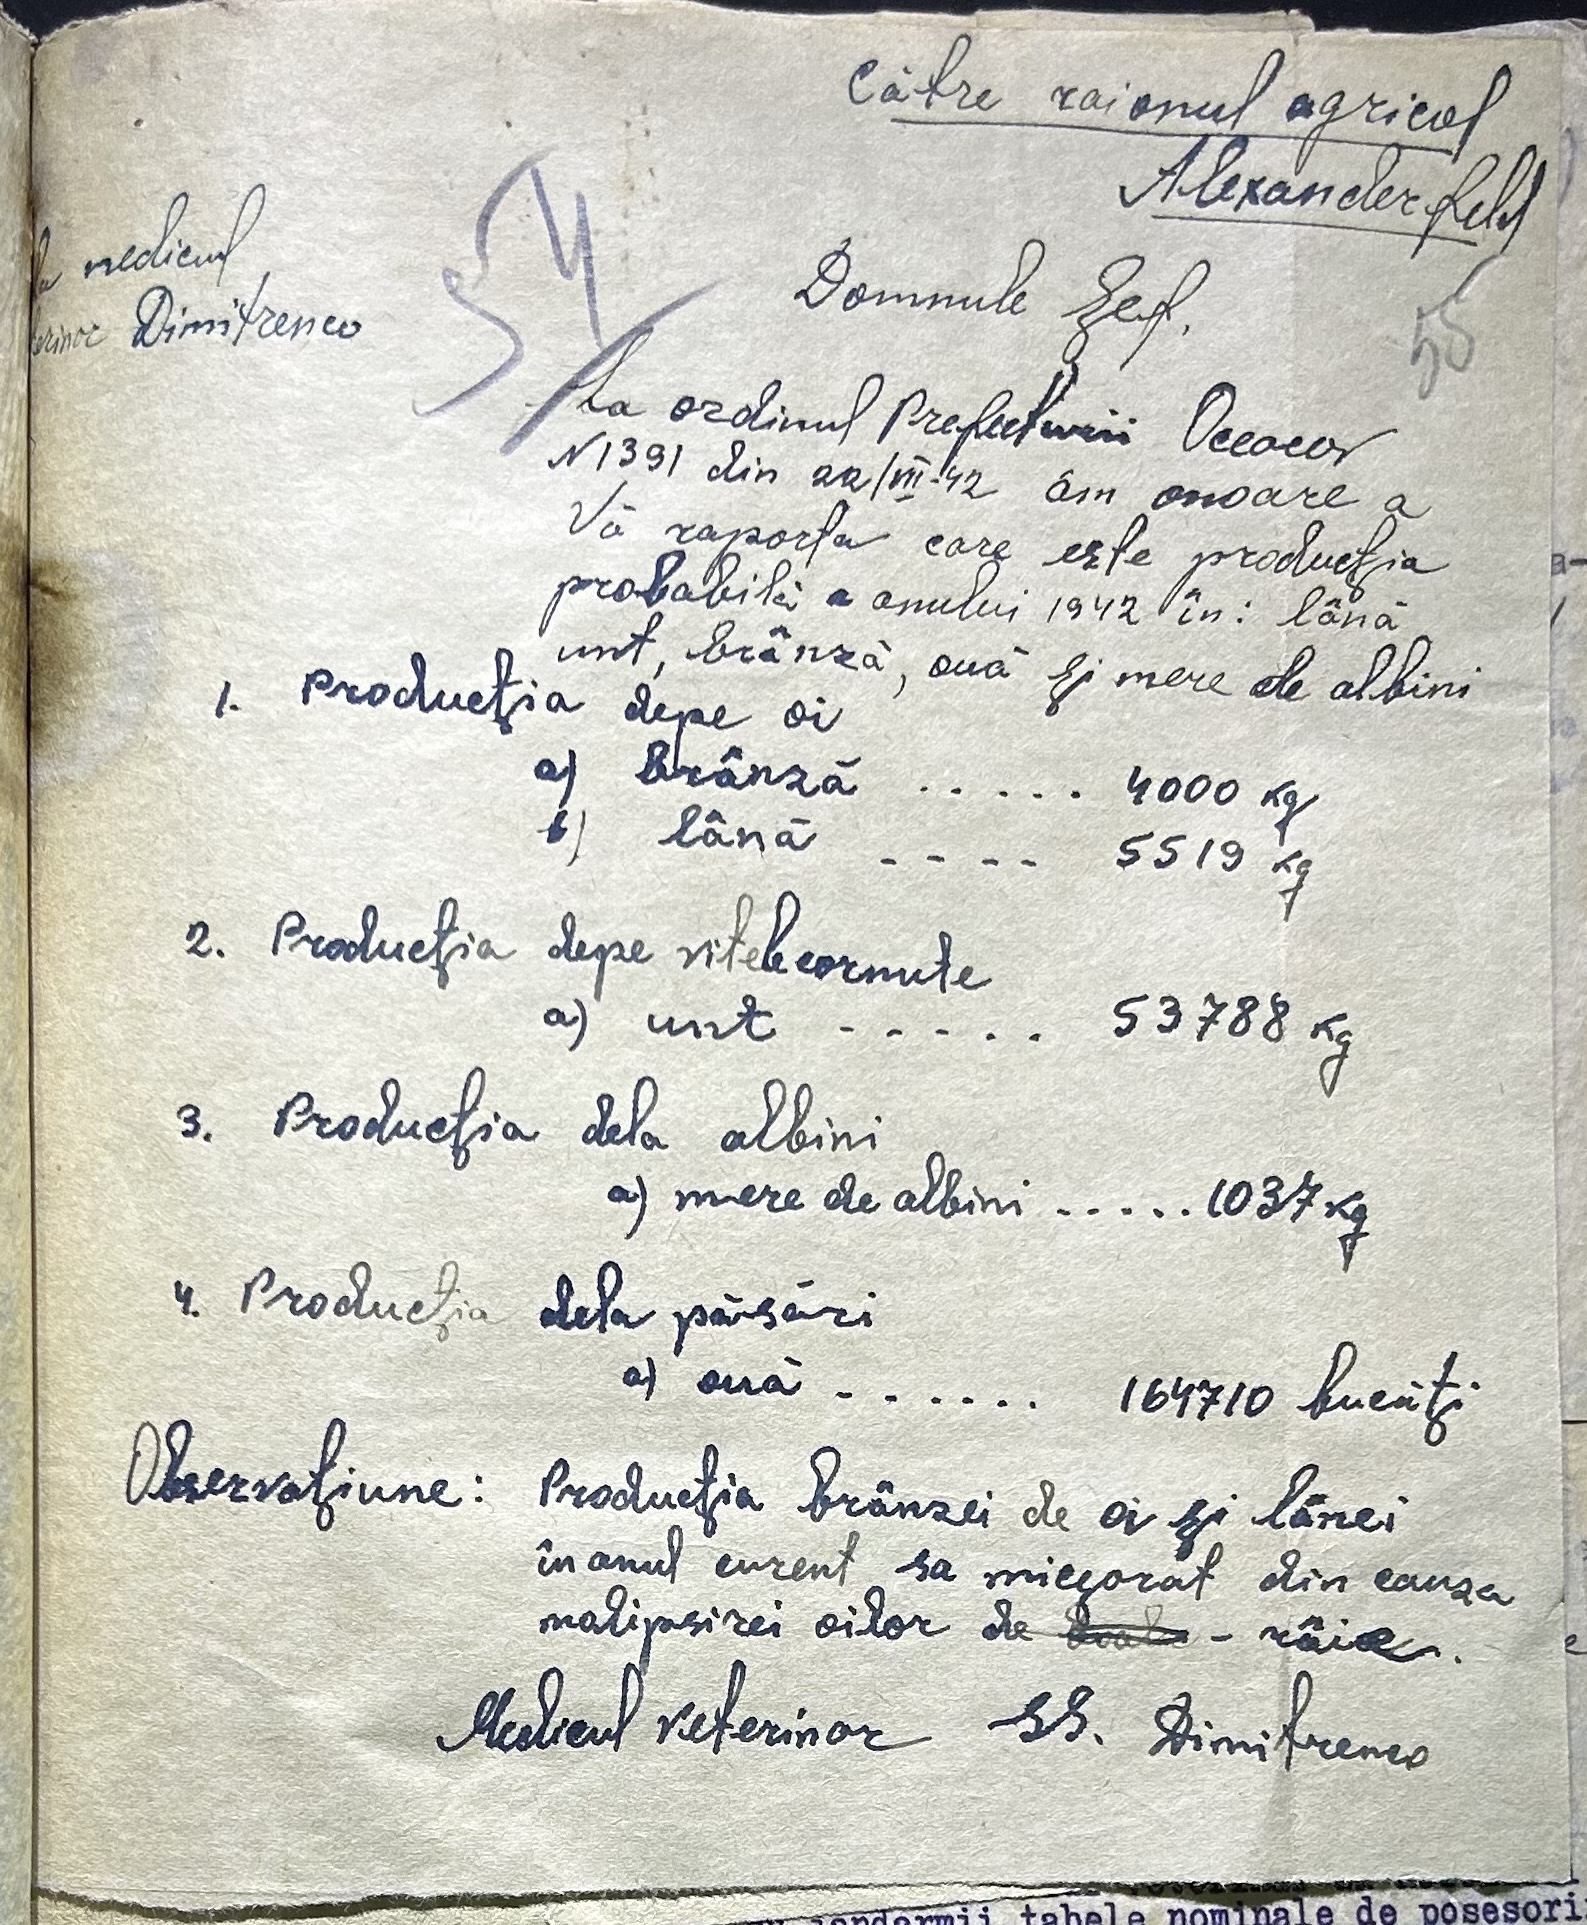 Către raionul agricol
Alexanderfeld
la medicul
erinar Dimitrenco
54
55
Domnule Șef,
La ordinul Prefecturii Oceacov
N 1391 din 22/VII-42 am onoare a
Vă raporta care este producția
probabilă a anului 1942 în: lână
unt, brânză, ouă și mere de albini
1. Producția depe oi
a) brânză ..... 4000 kg
b) lână ---- 5519 kg
2. Producția depe vitele cornute
a) unt ----- 53788 kg
3. Producția dela albini
a) mere de albini ..... 1037 kg
4. Producția dela păsări
a) ouă ...... 164710 bucăți
Observațiune: Producția brânzei de oi și lânei
în anul curent sa micșorat din cauza
molipsirei oilor de - râie.
Medicul veterinar SS. Dimitrenco
jandarmii tabele nominale de posesori